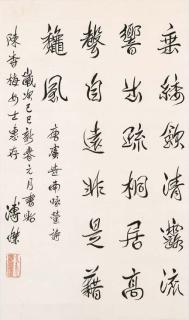 垂緌飲清露流
響出疏桐居高
聲自遠非是藉
龝風
唐虞世南詠螢詩
歲次己巳新春元月書贈
陳香梅女士惠存
溥傑